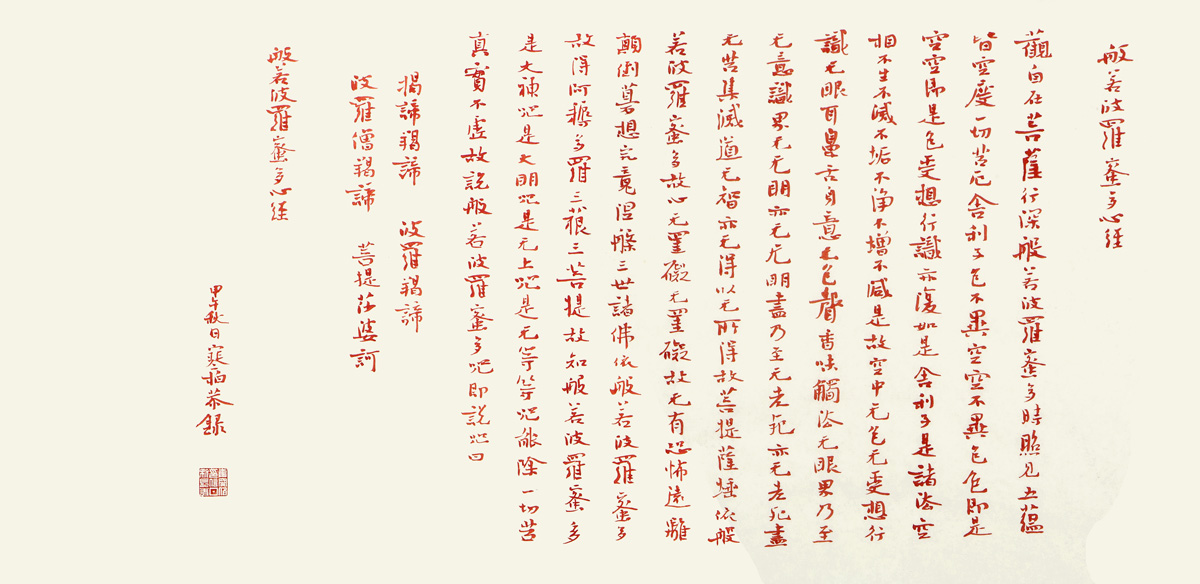 般若波羅蜜多心経
觀自在菩薩行深般若波羅蜜多時照见五蘊
皆空度一切苦厄舍利子色不異空空不異色色即是
空空即是色受想行識亦復如是舍利子是諸法空
相不生不滅不垢不淨不增不減是故空中无色无受想行
識无眼耳鼻舌身意无色聲香味觸法无眼界乃至
无意識界无无明亦无无明盡乃至无老死亦无老死盡
无苦集滅道无智亦无得以无所得故菩提薩埵依般
若波羅蜜多故心无罣礙无罣礙故无有恐怖遠離
顛倒夢想究竟涅槃三世諸佛依般若波羅蜜多
故得阿耨多羅三藐三菩提故知般若波羅蜜多
是大神咒是大明咒是无上咒是无等等咒能除一切苦
真實不虛故説般若波羅蜜多咒即説咒曰
揭諦揭諦 波羅揭諦
波羅僧揭諦 菩提莎婆訶
般若波羅蜜多心経
甲午秋日寒柏恭録